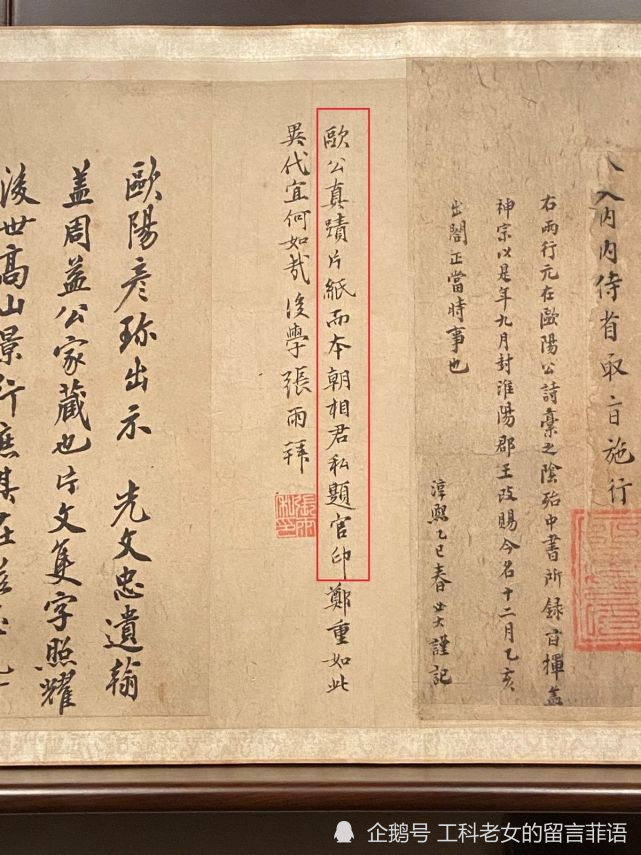 入内内侍省取旨施行
右兩行元在歐陽公詩藁之陰殆中書所録旨揮盖
神宗以是年九月封淮陽郡王改賜今名十二月乙亥
出閤正當時事也
淳熙乙巳春必大謹記
歐公真蹟片紙而本朝相君私題官印鄭重如此
異代宜何如哉後學張雨拜
歐陽彦珎出示 先文忠遺翰
盖周益公家藏也片文隻字照耀
後世高山景行庶其在茲
企鹅号 工科老女的留言菲语